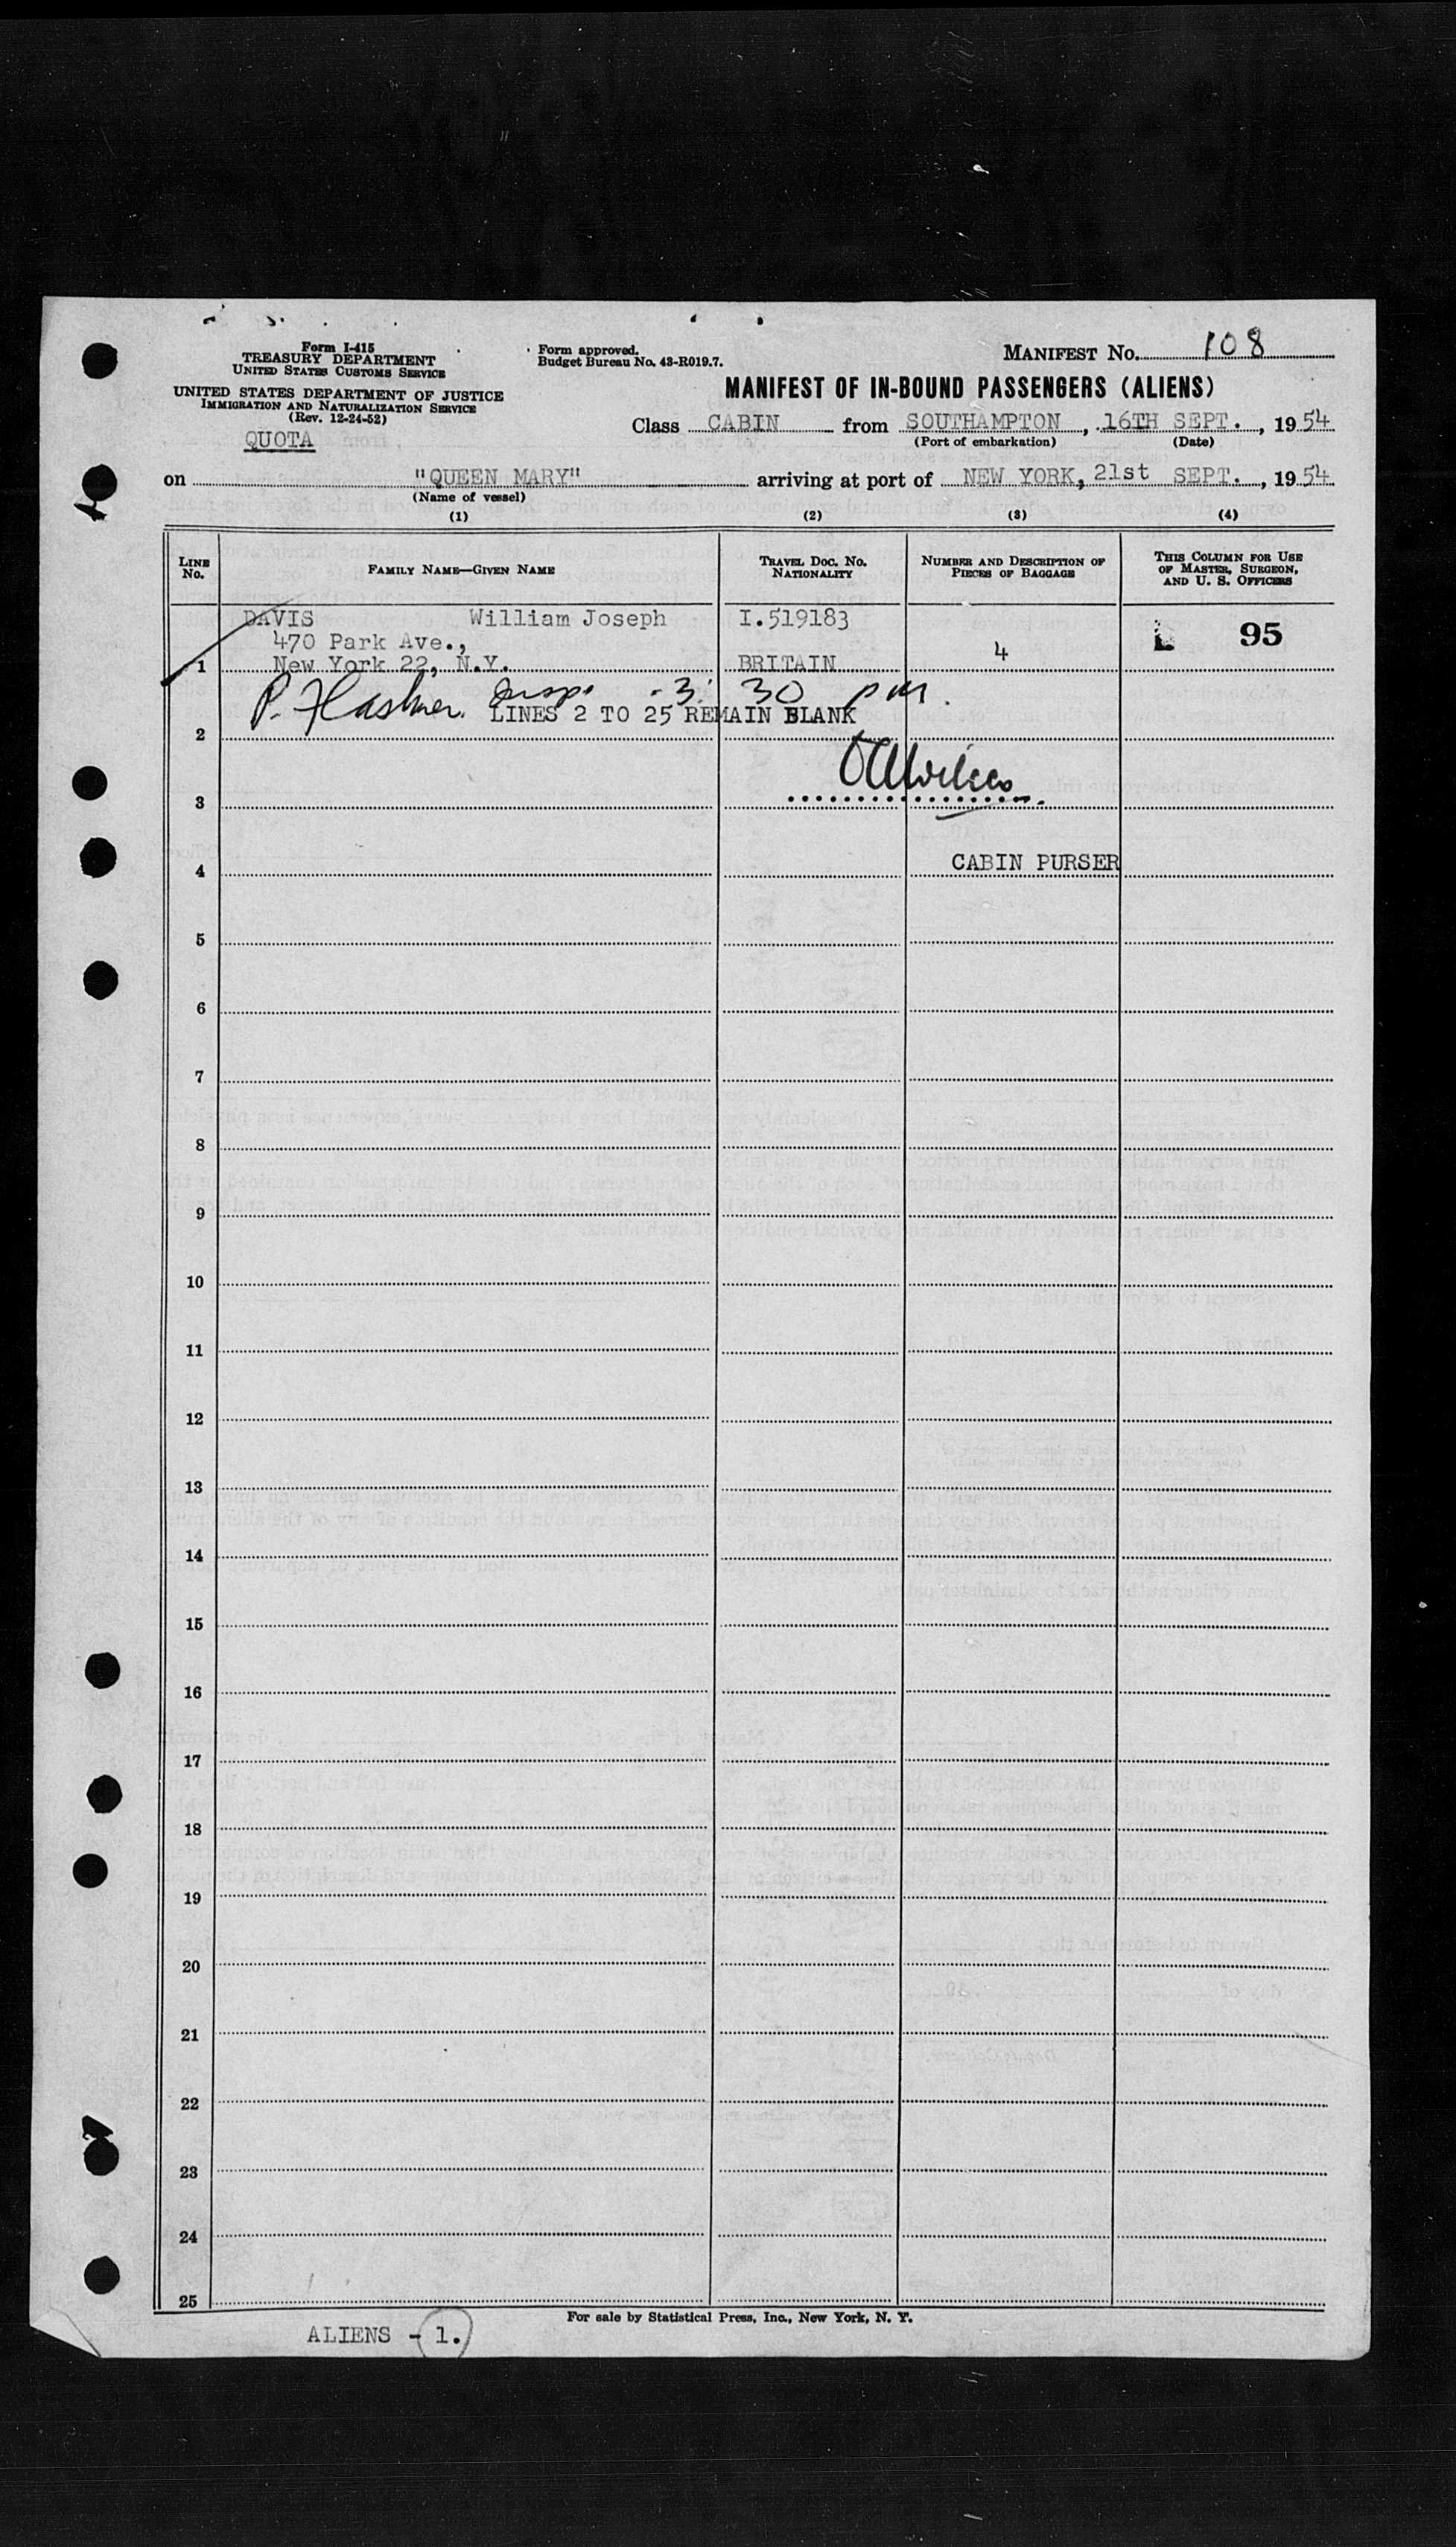 Form I-415
TREASURY DEPARTMENT
UNITED STATES CUSTOMS SERVICE
UNITED STATES DEPARTMENT OF JUSTICE
IMMIGRATION AND NATURALIZATION SERVICE
(Rev. 12-24-52)
QUOTA
Form approved.
Budget Bureau No. 43-R019.7.
MANIFEST NO. 108
MANIFEST OF IN-BOUND PASSENGERS (ALIENS)
Class CABIN from SOUTHAMPTON, 16TH SEPT., 1954
(Port of embarkation) (Date)
on "QUEEN MARY" arriving at port of NEW YORK, 21st SEPT., 1954
(Name of vessel)
(1) (2) (3) (4)
LINE NO. FAMILY NAME—GIVEN NAME TRAVEL DOC. NO. NATIONALITY NUMBER AND DESCRIPTION OF PIECES OF BAGGAGE THIS COLUMN FOR USE OF MASTER, SURGEON, AND U. S. OFFICERS
DAVIS William Joseph I.519183 95
470 Park Ave., 4
1 New York 22, N.Y. BRITAIN
P. Insp. 3:30 pm.
LINES 2 TO 25 REMAIN BLANK
2
3
4 CABIN PURSER
5
6
7
8
9
10
11
12
13
14
15
16
17
18
19
20
21
22
23
24
25
For sale by Statistical Press, Inc., New York, N. Y.
ALIENS - 1.